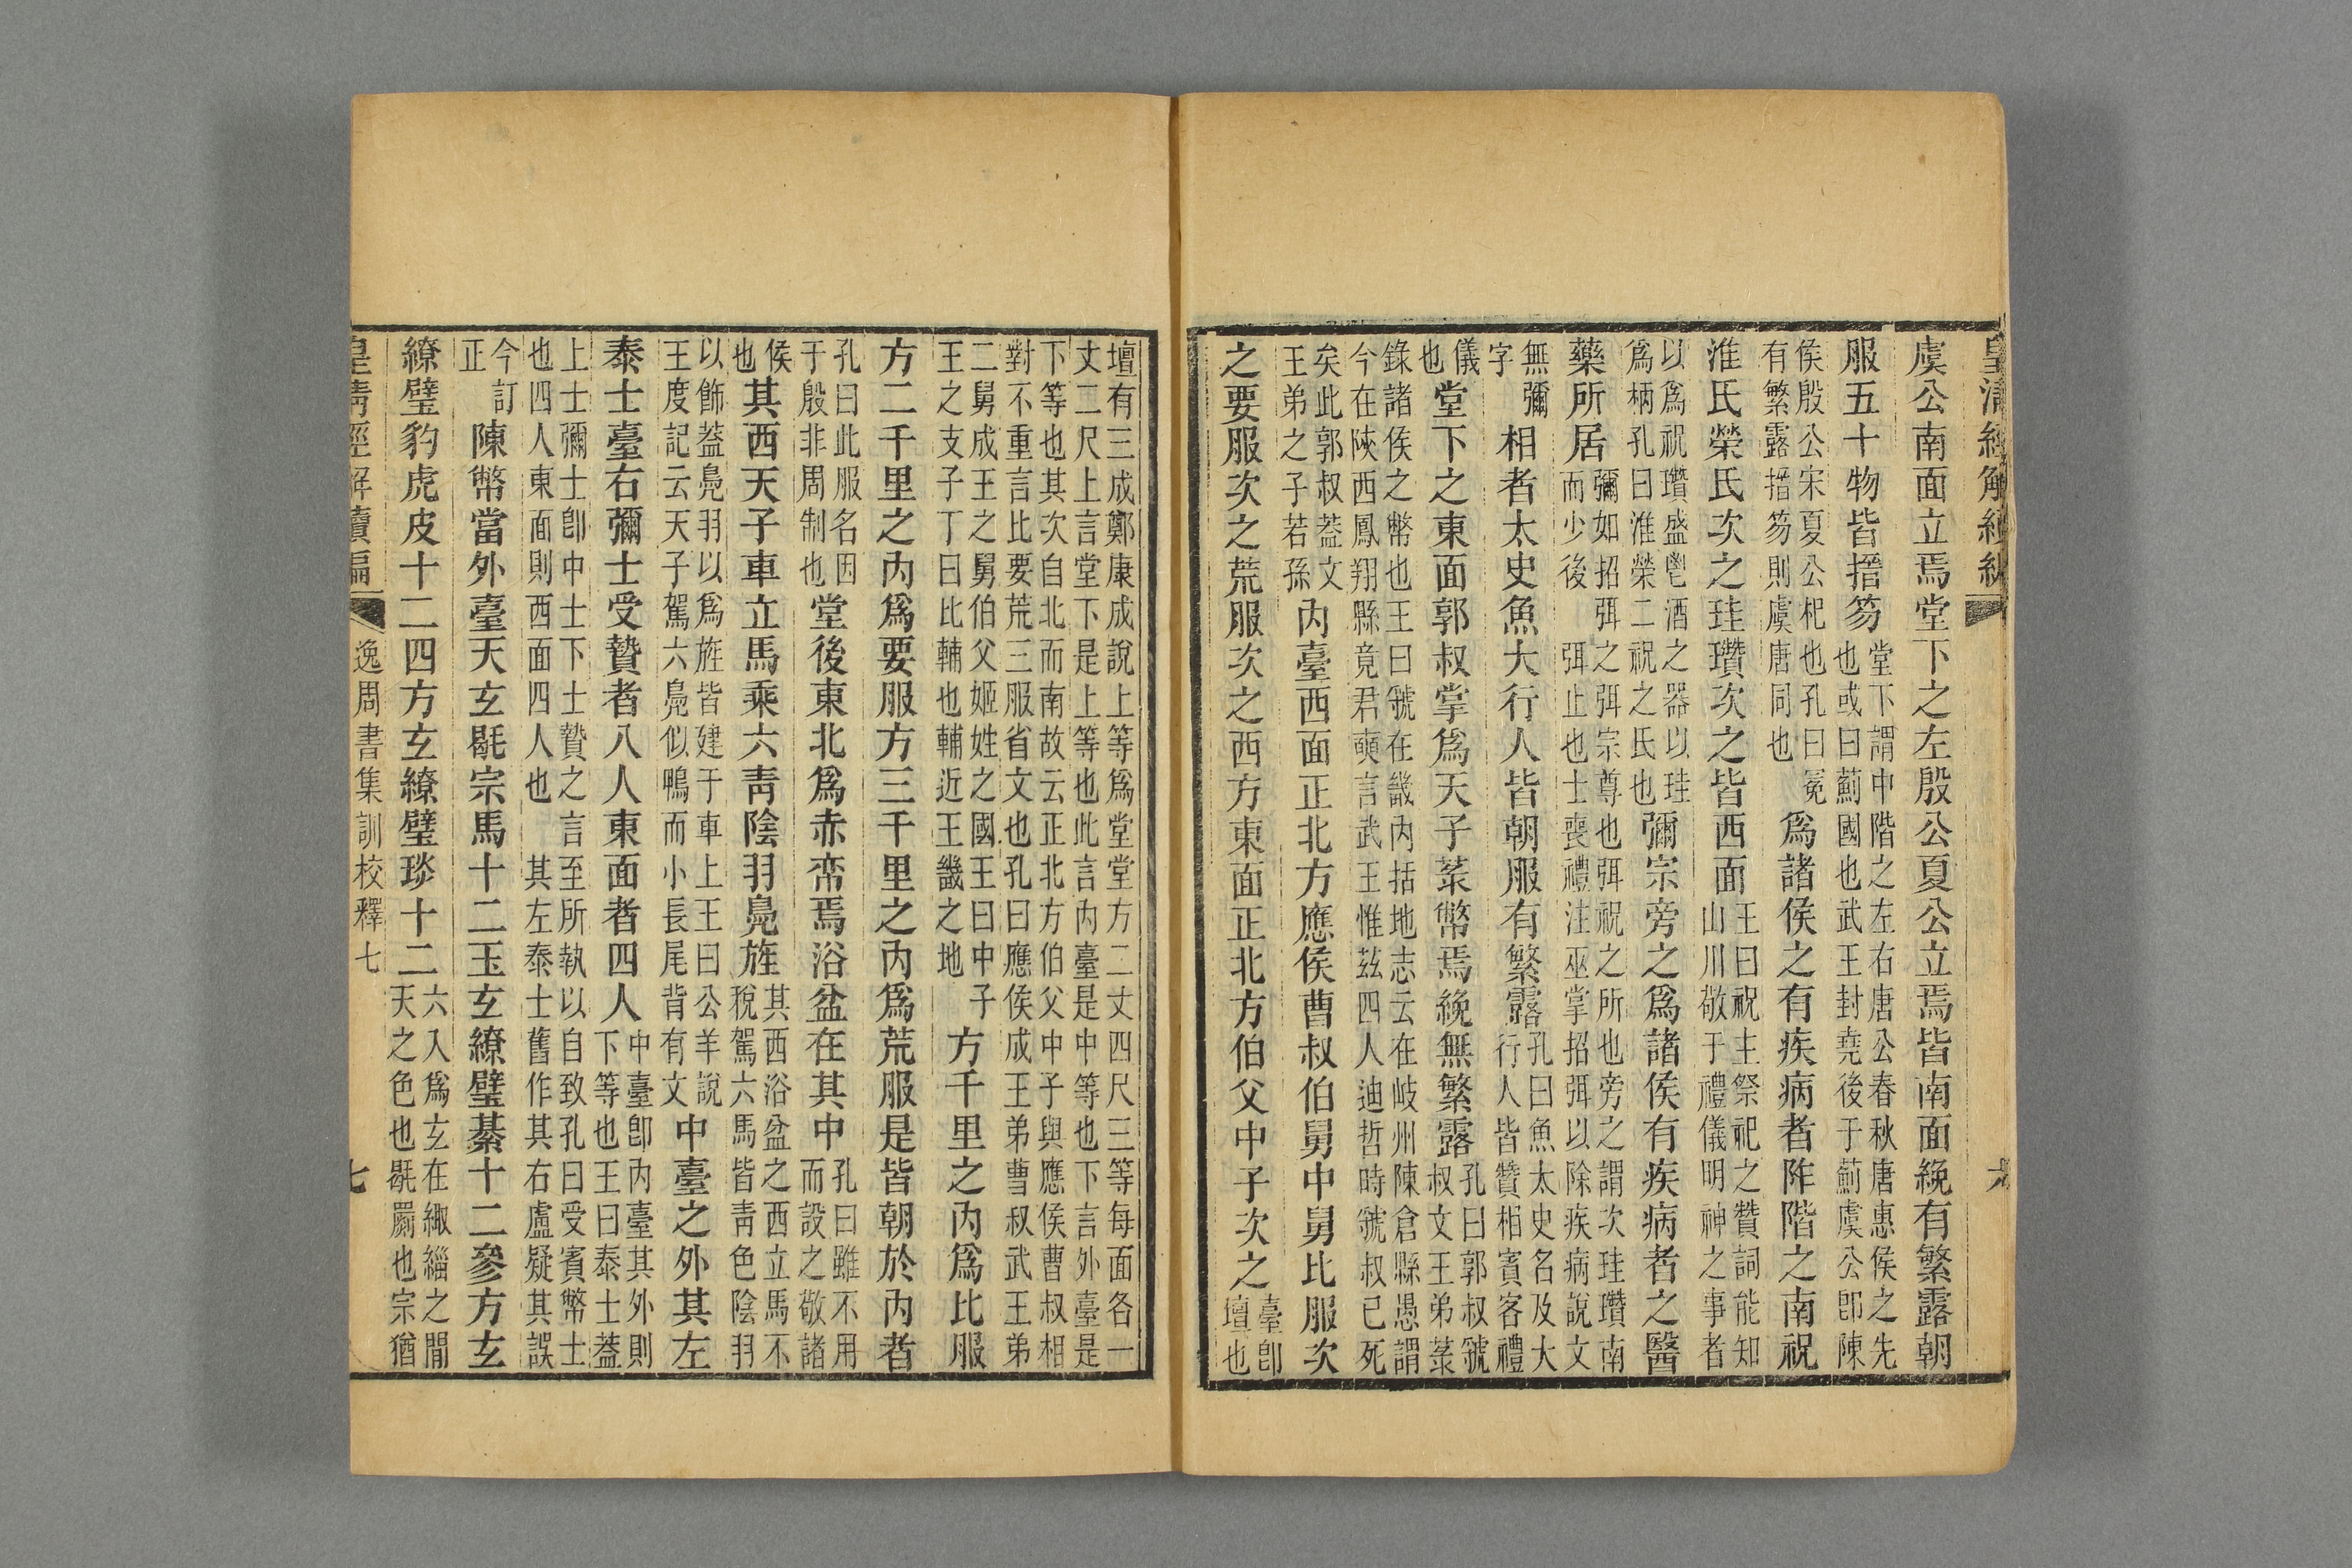 虞公南面立焉堂下之左殷公夏公立焉皆南面絻有繁露朝
服五十物皆搢笏堂下謂中階之左右唐公春秋唐惠侯之先也或曰薊國也武王封堯後于薊虞公卽陳
侯殷公宋夏公杞也孔曰冕有繁露搢笏則虞唐同也爲諸侯之有疾病者阼階之南祝
淮氏榮氏次之珪瓚次之皆西面王曰祝主祭祀之贊詞能知山川敬于禮儀明神之事者
以爲祝瓚盛鬯酒之器以珪爲柄孔曰淮榮二祝之氏也彌宗旁之爲諸侯有疾病者之醫
藥所居彌如招弭之弭宗尊也弭祝之所也旁之謂次珪瓚南而少後 弭止也士喪禮注巫掌招弭以除疾病說文
無彌字相者太史魚大行人皆朝服有繁露孔曰魚太史名及大行人皆贊相賓客禮
儀也堂下之東面郭叔掌爲天子菉幣焉絻無繁露孔曰郭叔虢叔文王弟菉
錄諸侯之幣也王曰虢在畿內括地志云在岐州陳倉縣愚謂今在陝西鳳翔縣竟君奭言武王惟茲四人迪哲時虢叔已死
矣此郭叔葢文王弟之子若孫內臺西面正北方應侯曹叔伯舅中舅比服次
之要服次之荒服次之西方東面正北方伯父中子次之臺卽壇也
壇有三成鄭康成說上等爲堂堂方二丈四尺三等每面各一丈二尺上言堂下是上等也此言內臺是中等也下言外臺是
下等也其次自北而南故云正北方伯父中子與應侯曹叔相對不重言比要荒三服省文也孔曰應侯成王弟曹叔武王弟
二舅成王之舅伯父姬姓之國王曰中子王之支子丁曰比輔也輔近王畿之地方千里之內爲比服
方二千里之內爲要服方三千里之內爲荒服是皆朝於內者
孔曰此服名因于殷非周制也堂後東北爲赤帟焉浴盆在其中孔曰雖不用而設之敬諸
侯也其西天子車立馬乘六靑陰羽鳧旌其西浴盆之西立馬不稅駕六馬皆靑色陰羽
以飾葢鳧羽以爲旌皆建于車上王曰公羊說王度記云天子駕六鳧似鴨而小長尾背有文中臺之外其左
泰士臺右彌士受贄者八人東面者四人中臺卽內臺其外則下等也王曰泰士葢
上士彌士卽中士下士贄之言至所執以自致孔曰受賓幣士也四人東面則西面四人也 其左泰士舊作其右盧疑其誤
今訂正陳幣當外臺天玄毼宗馬十二玉玄繚璧綦十二參方玄
繚璧豹虎皮十二四方玄繚璧琰十二六入爲玄在緅緇之閒天之色也毼罽也宗猶
逸周書集訓校釋七
七